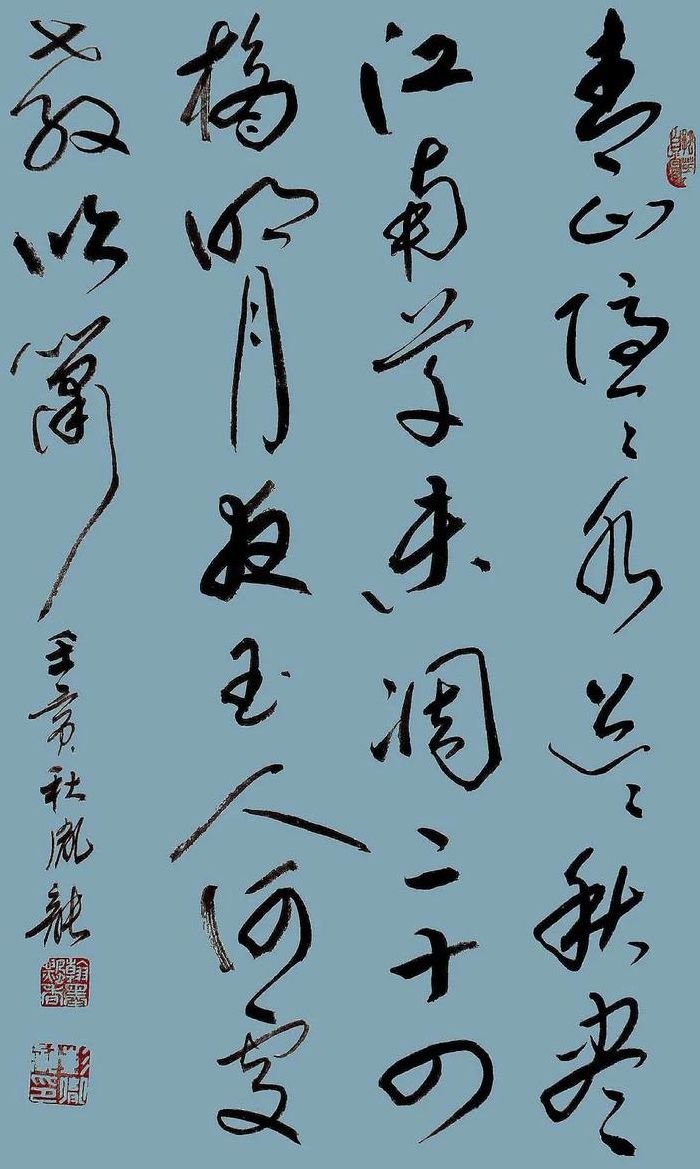 青山隱隱水迢迢秋盡
江南草未凋二十四
橋明月夜玉人何處
教吹簫
壬寅秋胤
翰墨飄香